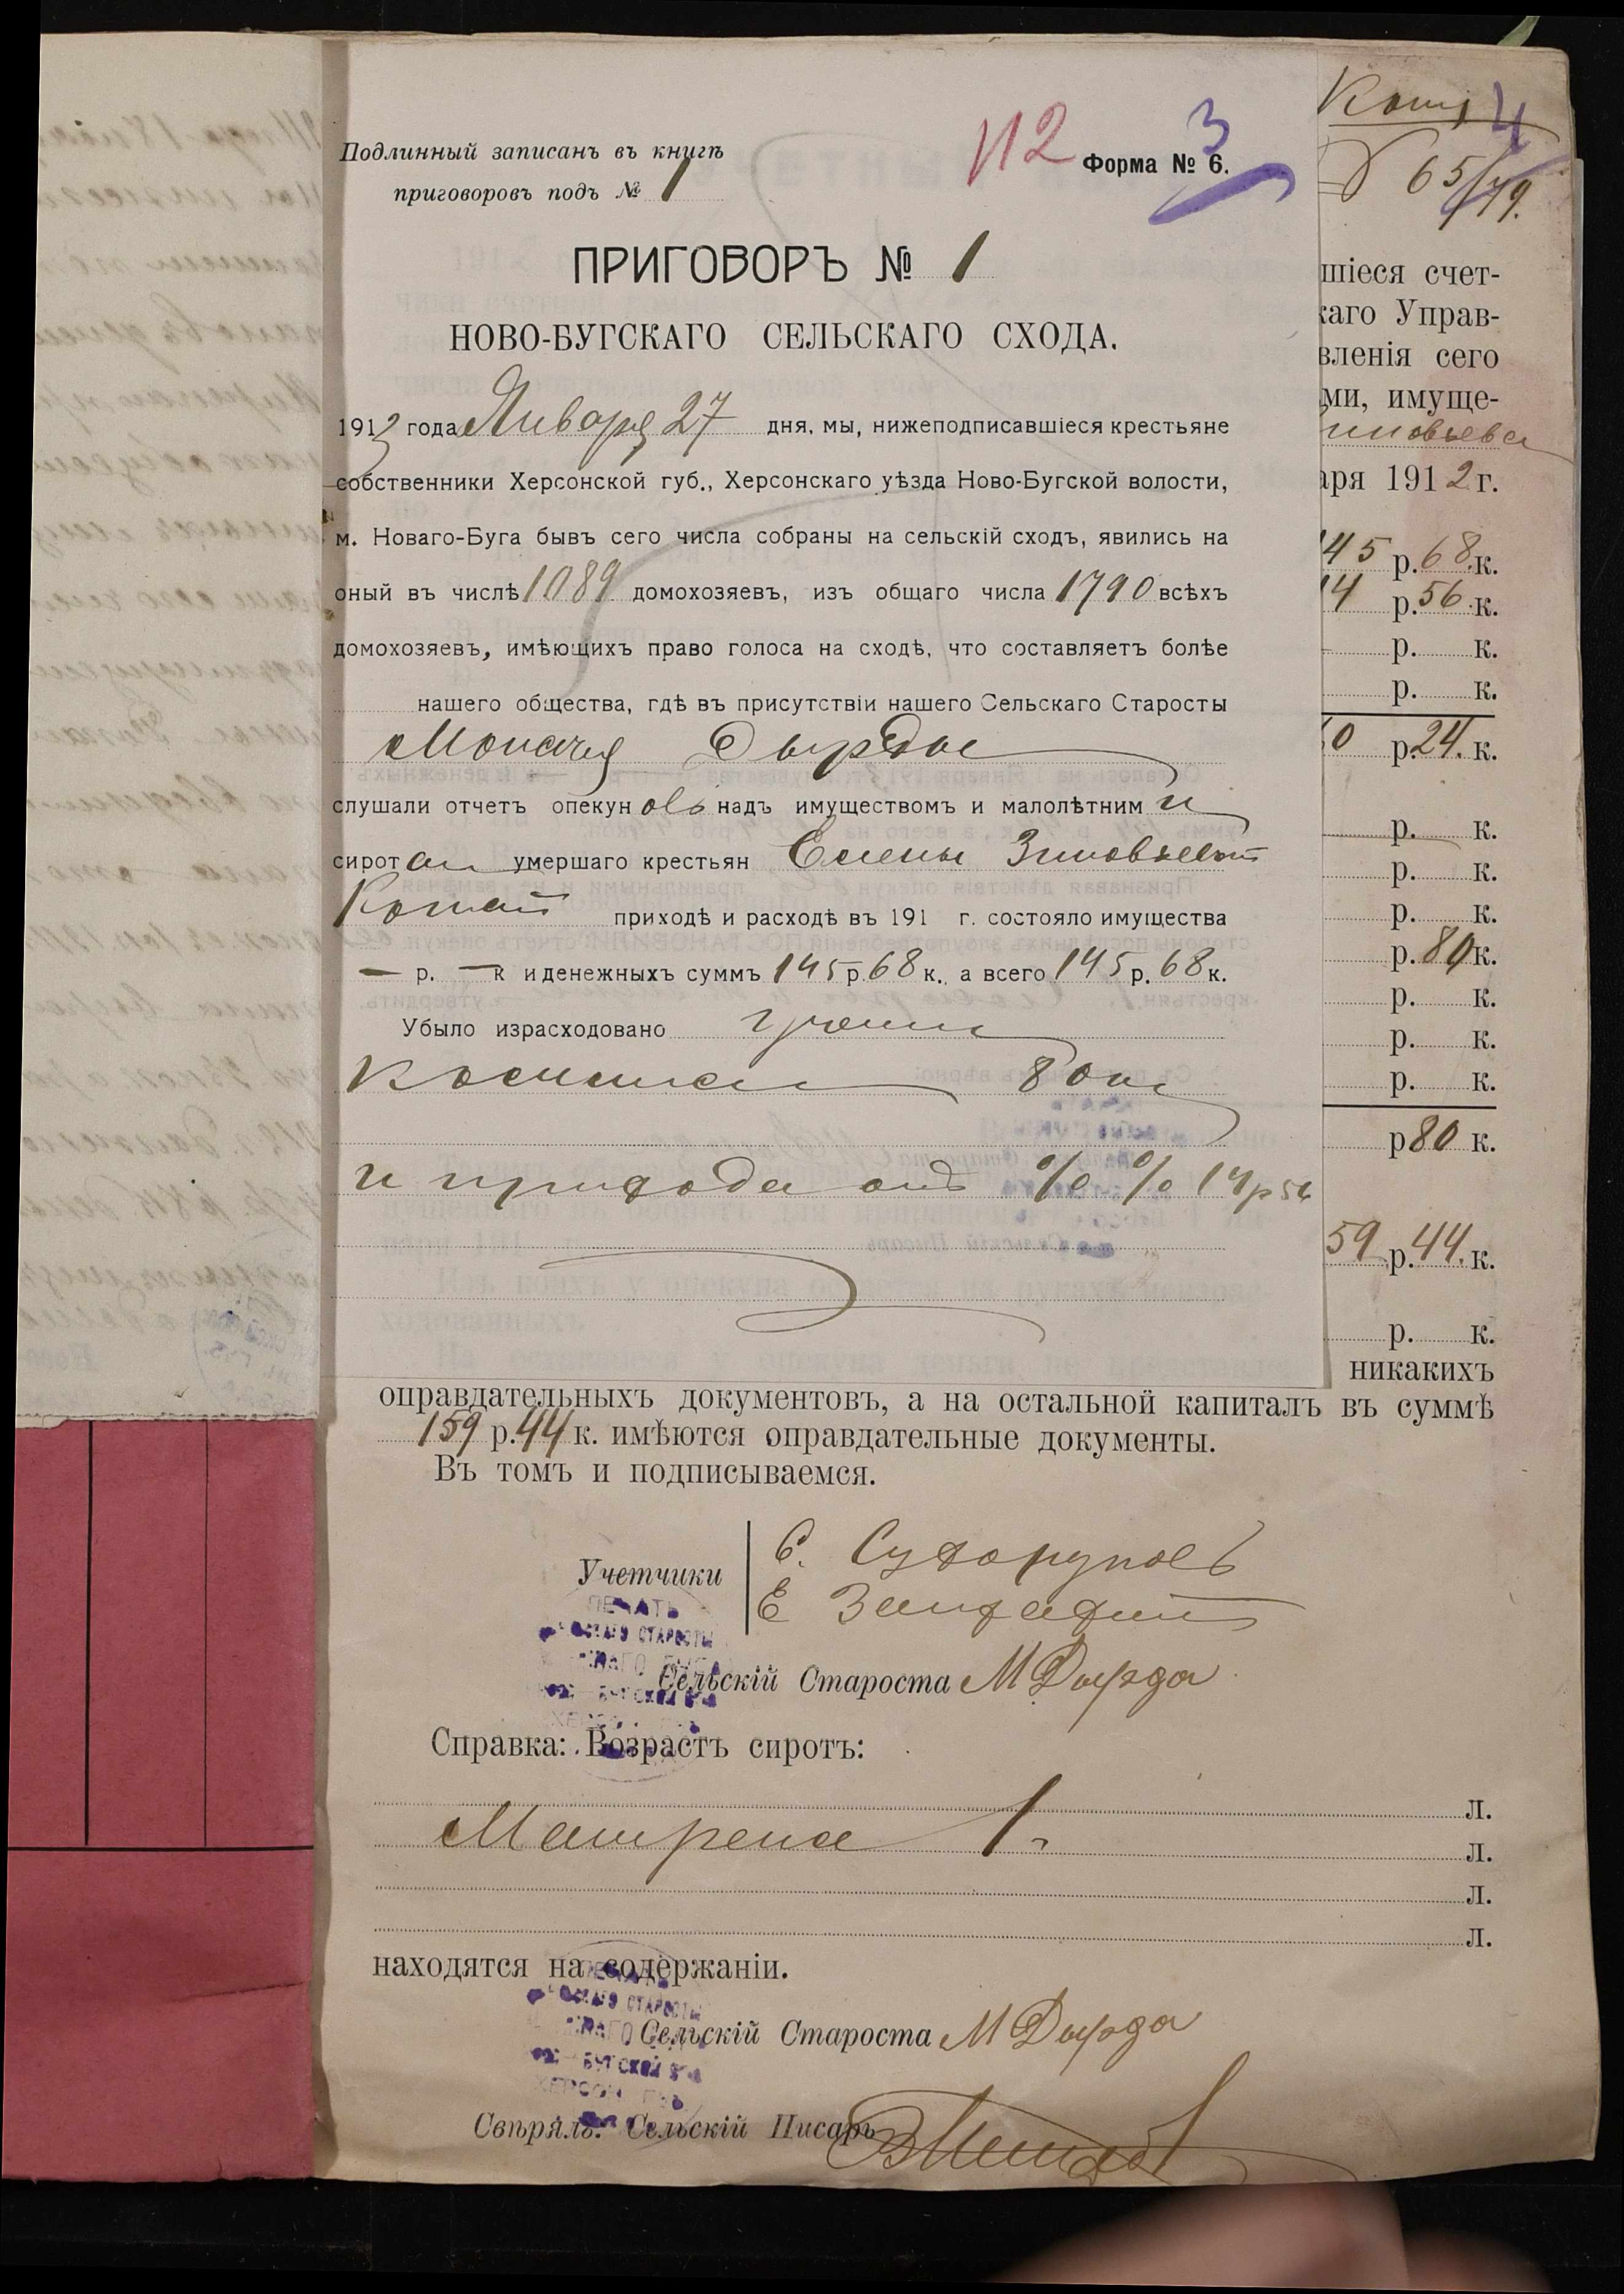 Подлинный записанъ въ книгѣ
приговоровъ подъ № 1
112
3
Форма № 6.
ПРИГОВОРЪ № 1
НОВО-БУГСКАГО СЕЛЬСКАГО СХОДА.
1913 года Января 27 дня, мы, нижеподписавшіеся крестьяне
собственники Херсонской губ., Херсонскаго уѣзда Ново-Бугской волости,
м. Новаго-Буга бывъ сего числа собраны на сельскій сходъ, явились на
оный въ числѣ 1089 домохозяевъ, изъ общаго числа 1790 всѣхъ
домохозяевъ, имѣющихъ право голоса на сходѣ, что составляетъ болѣе
нашего общества, гдѣ въ присутствіи нашего Сельскаго Старосты
Дырды
слушали отчетъ опекуновъ надъ имуществомъ и малолѣтними
сирот умершаго крестьян Елены Зиновьевой
приходѣ и расходѣ въ 191 г. состояло имущества
— р. — к и денежныхъ суммъ 145 р. 68 к., а всего 145 р. 68 к.
Убыло израсходовано
80 к
и прихода отъ % % 14 р 56
4
65/79.
шіеся счет-
каго Управ-
вленія сего
ми, имуще-
иновьева
аря 1912 г.
145 р. 68 к.
14 р. 56 к.
р. к.
р. к.
60 р. 24 к.
р. к.
р. к.
р. к.
р. 80 к.
р. к.
р. к.
р. к.
р 80 к.
59 р. 44 к.
р. к.
никакихъ
оправдательныхъ документовъ, а на остальной капиталъ въ суммѣ
159 р. 44 к. имѣются оправдательные документы.
Въ томъ и подписываемся.
Учетчики
С. Сухоруковъ
Е
ПЕЧАТЬ
СКАГО СТАРОСТЫ
Сельскій Староста М Дырда
Справка: Возрастъ сиротъ:
л.
Матрена 1 л.
л.
л.
находятся на содержаніи.
СКАГО СТАРОСТЫ
Сельскій Староста М Дырда
БУГСКОЙ
Свѣрялъ: Сельскій Писарь